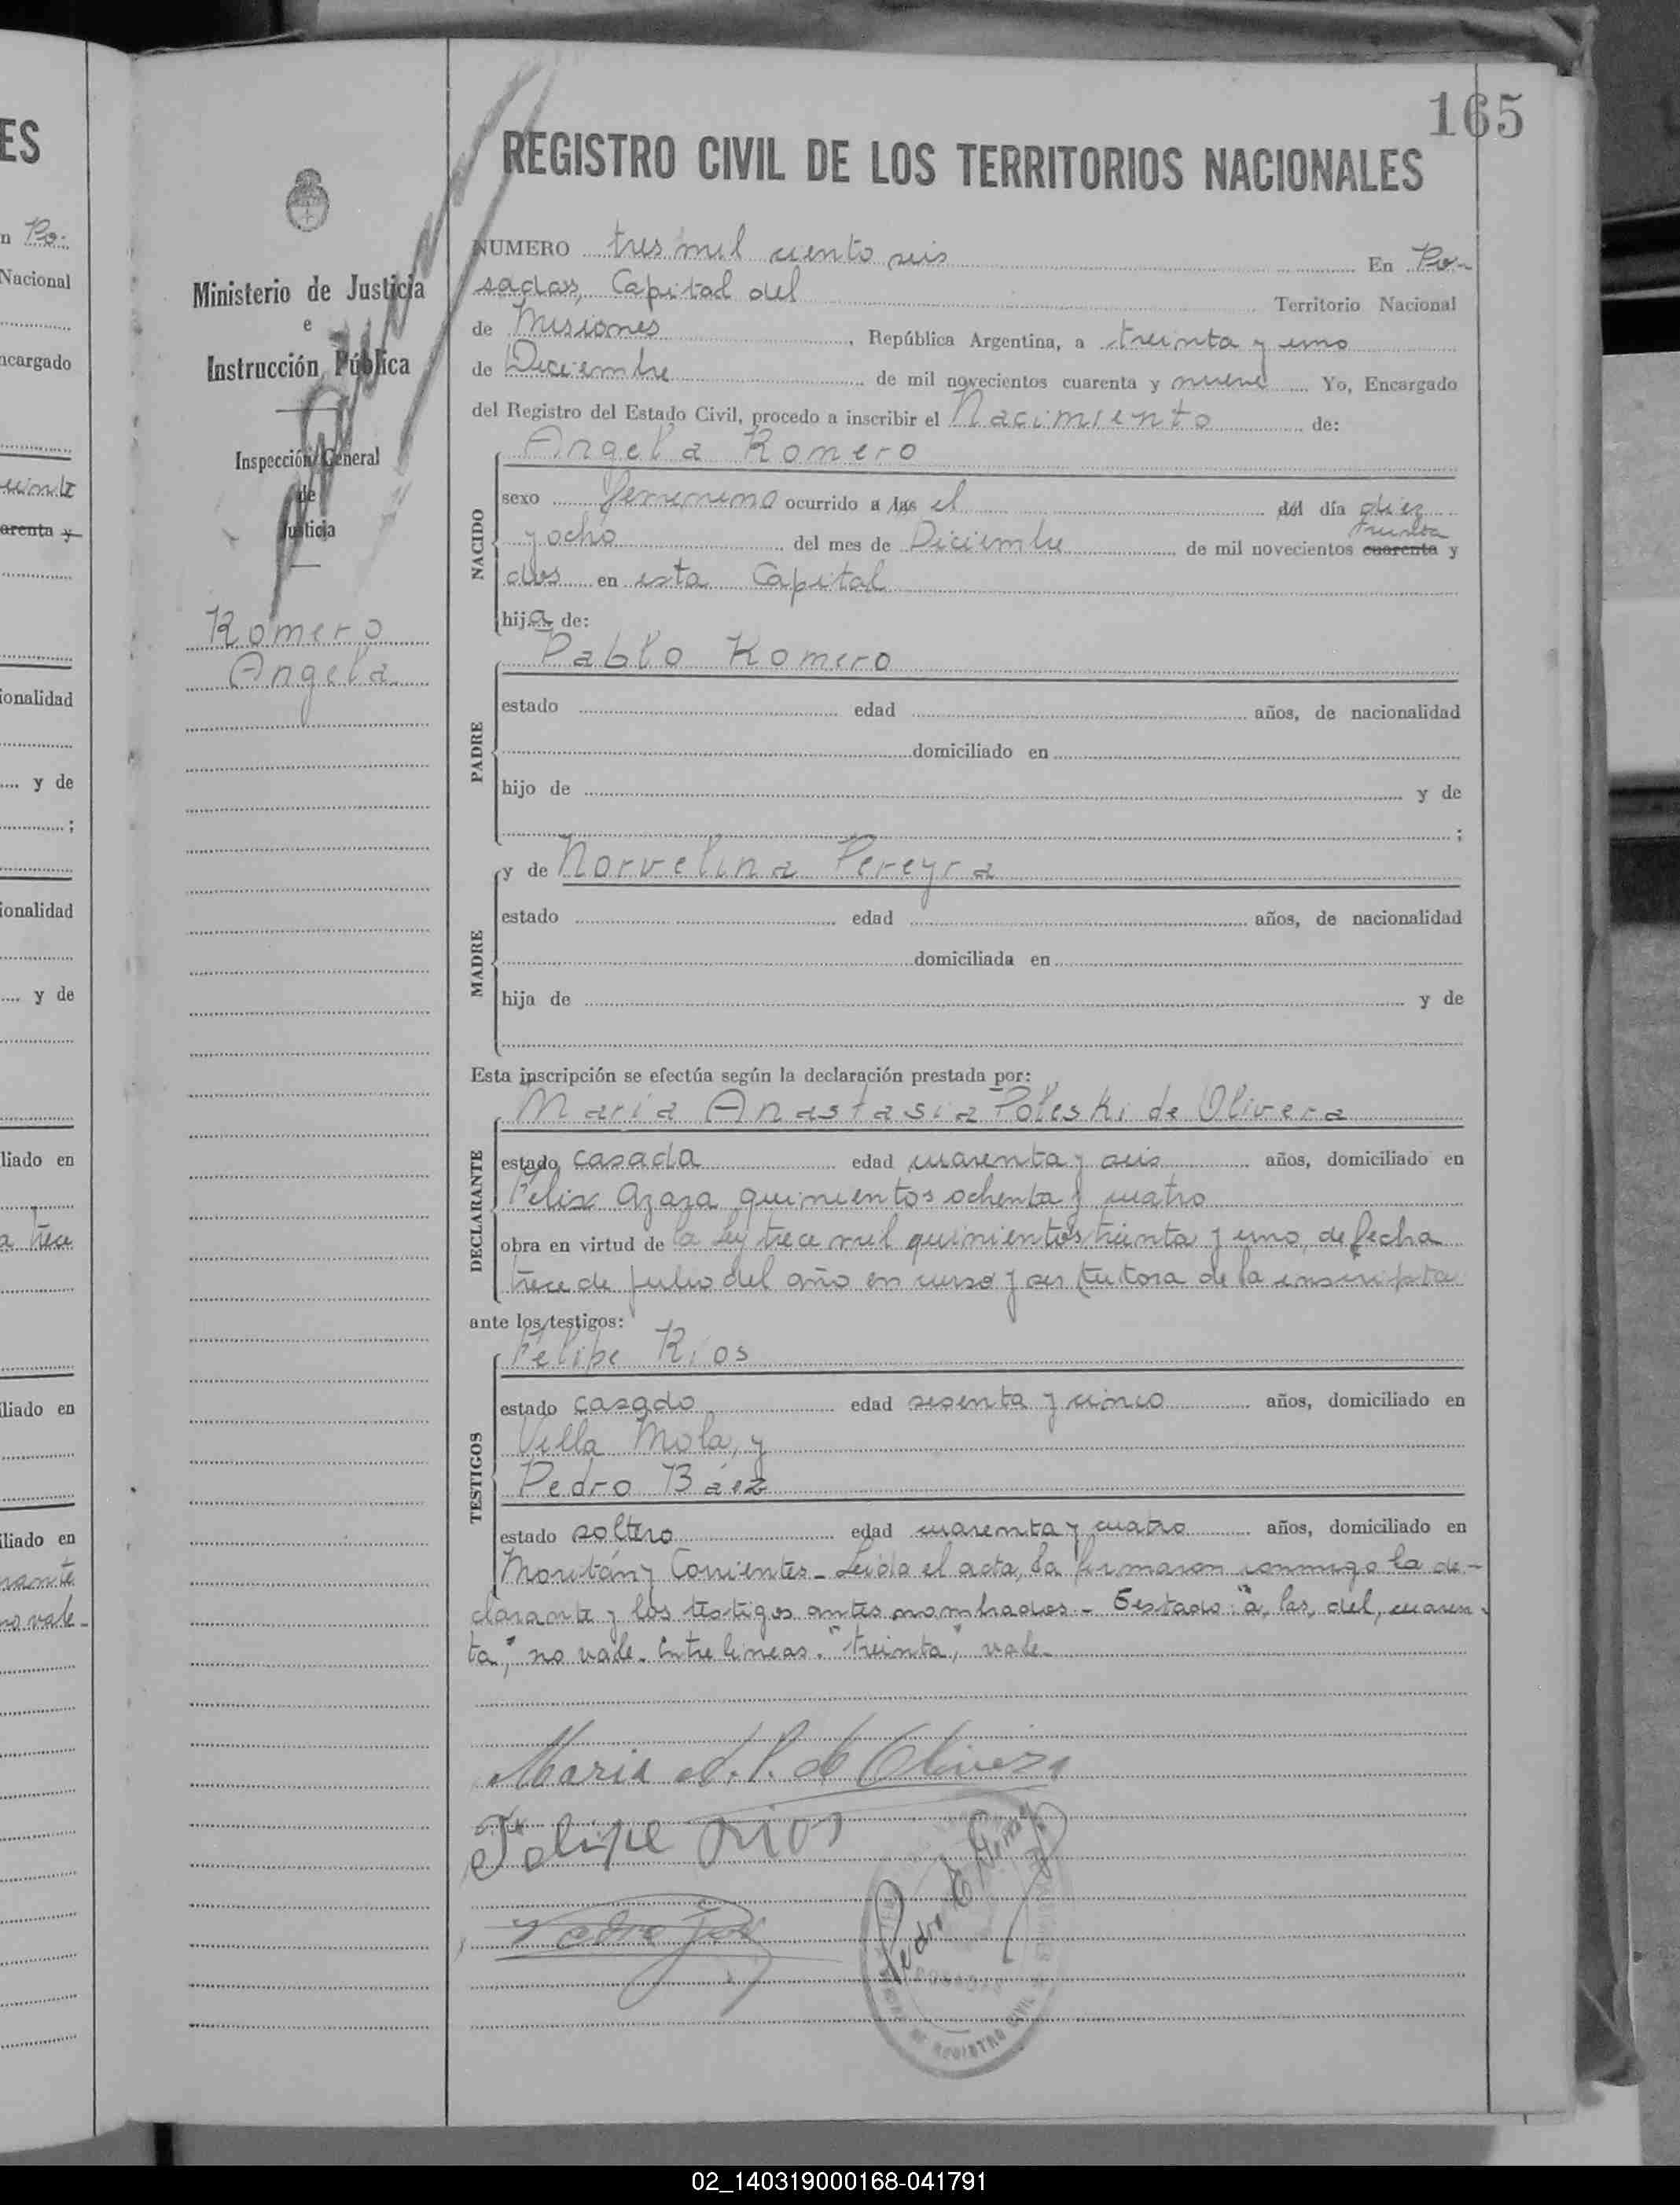 165
REGISTRO CIVIL DE LOS TERRITORIOS NACIONALES
Ministerio de Justicia
e
Instrucción Pública
Inspección General
de
Justicia
Romero
Angela
NUMERO tres mil ciento seis En Po-
sadas, Capital del Territorio Nacional
de Misiones, República Argentina, a treinta y uno
de Diciembre de mil novecientos cuarenta y nueve Yo, Encargado
del Registro del Estado Civil, procedo a inscribir el Nacimiento de:
Angela Romero
NACIDO
sexo femenino ocurrido a las el del día diez
treinta
y ocho del mes de Diciembre de mil novecientos cuarenta y
dos en esta Capital
hija de:
Pablo Romero
PADRE
estado edad años, de nacionalidad
domiciliado en
hijo de y de
;
y de Norvelina Pereyra
MADRE
estado edad años, de nacionalidad
domiciliada en
hija de y de
Esta inscripción se efectúa según la declaración prestada por:
Maria Anastasia Poleski de Olivera
DECLARANTE
estado casada edad cuarenta y seis años, domiciliado en
Felix Azara quinientos ochenta y cuatro
obra en virtud de la Ley trece mil quinientos treinta y uno, de fecha
trece de julio del año en curso y ser tutora de la inscripta
ante los testigos:
Felipe Rios
TESTIGOS
estado casado edad sesenta y cinco años, domiciliado en
Villa Mola, y
Pedro Báez
estado soltero edad cuarenta y cuatro años, domiciliado en
y Corrientes - Leida el acta, la firmaron conmigo la de-
clarante y los testigos antes nombrados - Testado: "a, las, del, cuaren-
ta," no vale. Entre lineas: "treinta," vale-
Maria A. P. de Olivera
Felipe Rios
Pedro
Pedro E.
POSADAS
REGISTRO CIVIL
ES
n Po-
Nacional
ncargado
arenta y
ionalidad
y de
;
ionalidad
y de
liado en
a trece
iliado en
iliado en
rante
no vale-
02_140319000168-041791